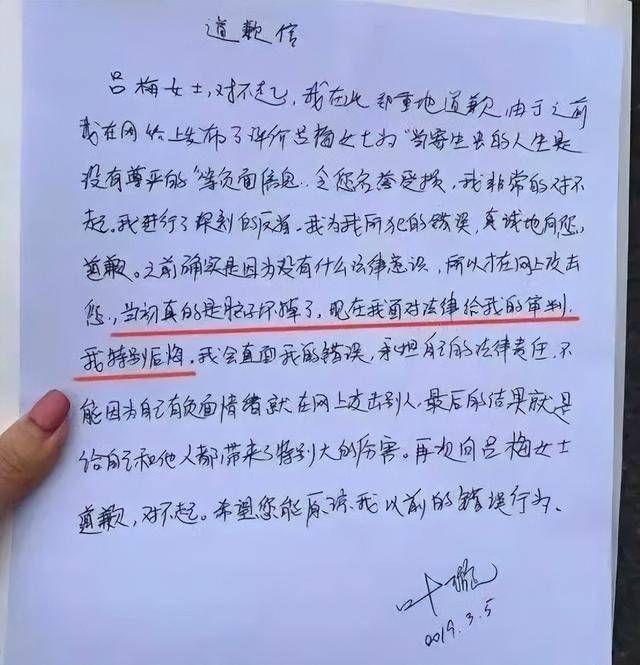 道歉信
吕梅女士,对不起,我在此郑重地道歉,由于之前
我在网络上发布了评价吕梅女士为“当寄生虫的人生是
没有尊严的”等负面信息.令您名誉受损,我非常的对不
起.我进行了深刻的反省.我为我所犯的错误,真诚地向您,
道歉。之前确实是因为没有什么法律意识,所以才在网上攻击
您.,当初真的是脑子坏掉了,现在我面对法律给我的审判.
我特别后悔。我会直面我的错误,承担自己的法律责任,不
能因为自己有负面情绪就在网上攻击别人,最后的结果就是
给自己和他人都带来了特别大的伤害。再次向吕梅女士
道歉,对不起。希望您能原谅我以前的错误行为.
叶璇
2019.3.5